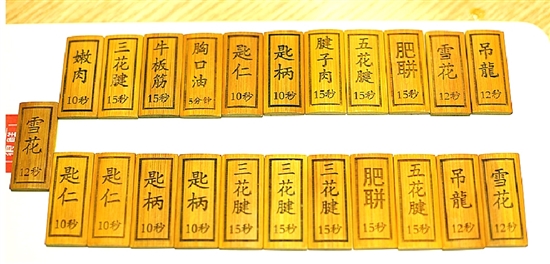 嫩肉 10秒
三花腱 15秒
牛板筋 15秒
胸口油 5分钟
匙仁 10秒
匙柄 10秒
腱子肉 15秒
五花腱 15秒
肥胼 15秒
雪花 12秒
吊龍 12秒
雪花 12秒
匙仁 10秒
匙仁 10秒
匙柄 10秒
匙柄 10秒
三花腱 15秒
三花腱 15秒
三花腱 15秒
肥胼 15秒
五花腱 15秒
吊龍 12秒
雪花 12秒